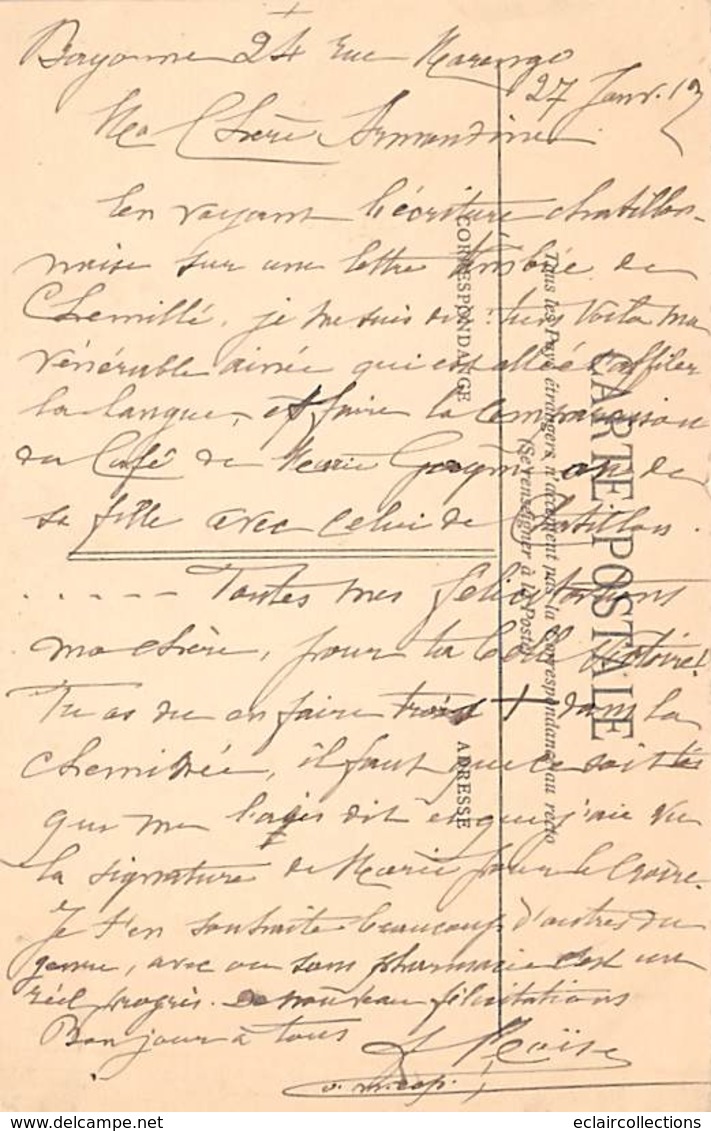 +
Bayonne 24 rue Marengo
27 Janv. 13
Ma Chère Armandine
En voyant l'écriture chatillon-
naise sur une lettre timbrée de
Chemillé, je me suis dit : tiens voilà ma
vénérable ainée qui est allée s'affiler
la langue, et faire la comparaison
du Café de Marie ou de
sa fille avec celui de Chatillon.
..... Toutes mes félicitations
ma chère, pour ta belle victoire!
Tu as du en faire trois + dans la
cheminée, il faut que ce soit
que me l'ayes dit et que j'aie vu
la signature de Marie pour le croire.
Je t'en souhaite beaucoup d'autres du
genre, avec ou sans pharmacie c'est un
réel progrès. De nouveau félicitations
Bonjour à tous
Moïse
o. m. cap.
CARTE POSTALE
Tous les Pays étrangers n'acceptent pas la Correspondance au recto
(Se renseigner à la Poste)
CORRESPONDANCE
ADRESSE
eclaircollections@delcampe.net